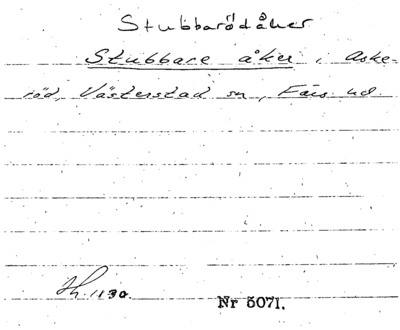 Stubbarödåker
Stubbare åker i Aske-
röd, Västerstad sn, Färs hd.
Th. 1130.
Nr 5071.